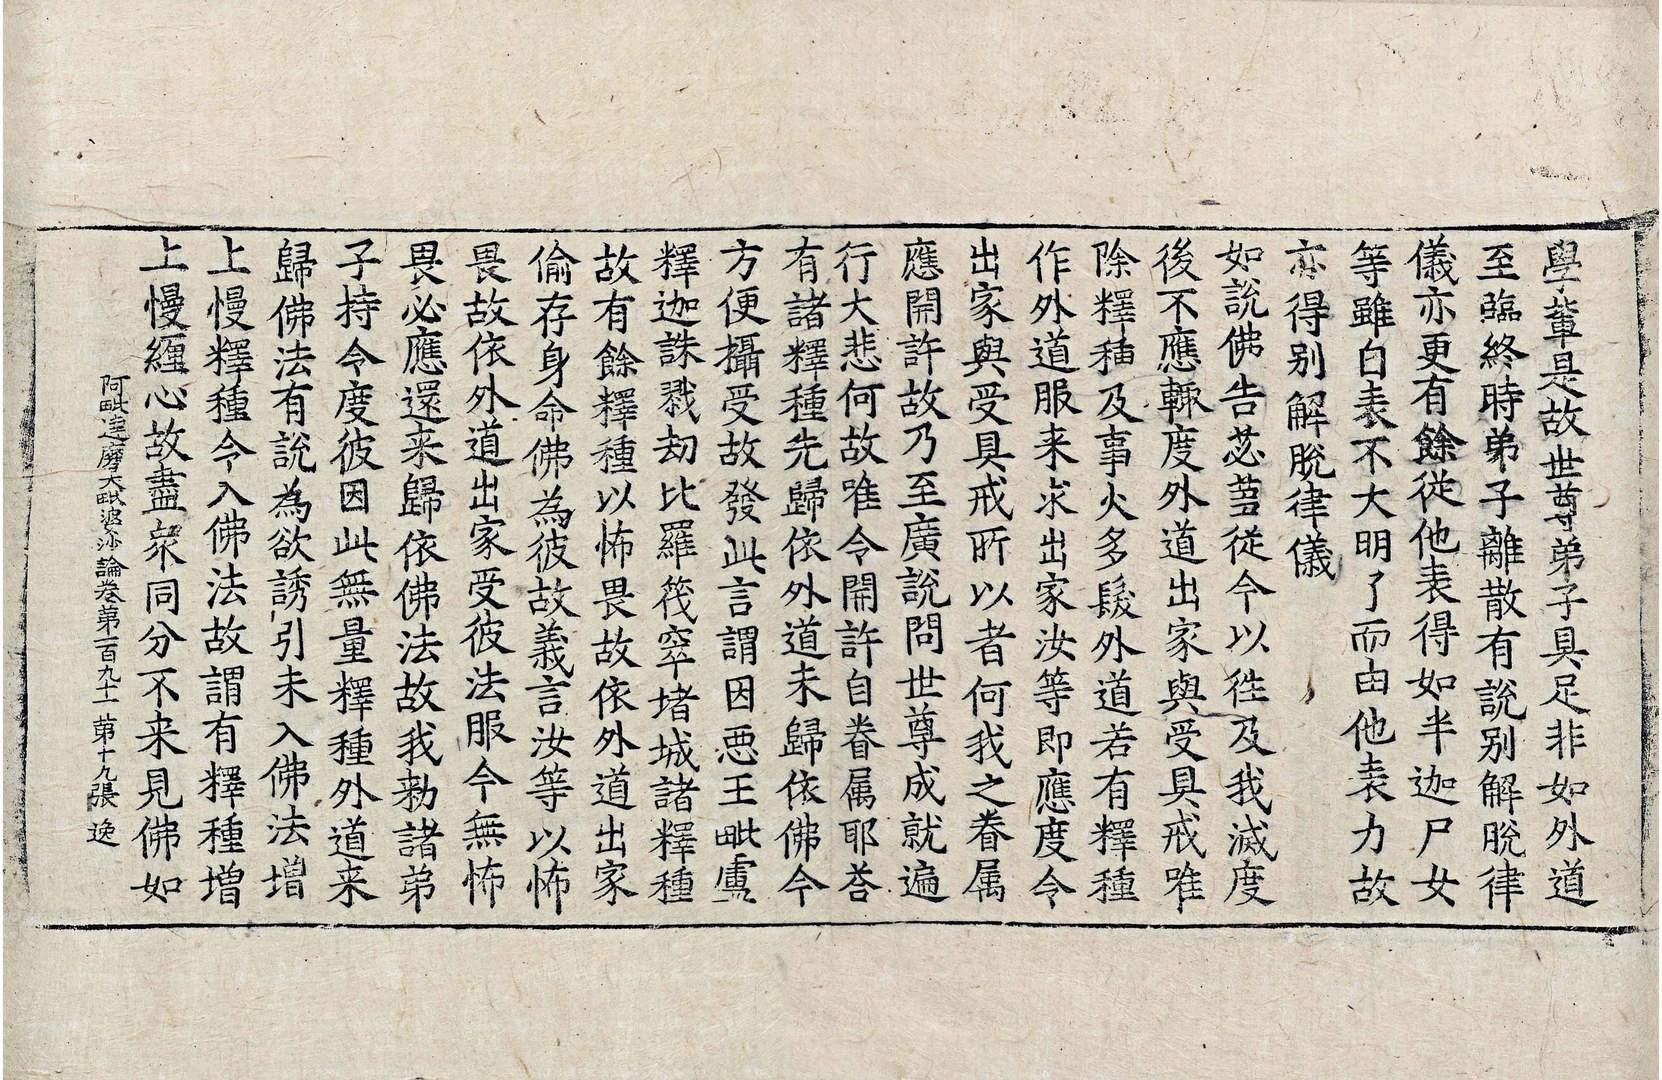 學輩是故世尊弟子具足非如外道
至臨終時弟子離散有說别解脫律
儀亦更有餘從他表得如半迦尸女
等雖白表不大明了而由他表力故
亦得别解脫律儀
如說佛告苾芻從今以往及我滅度
後不應輙度外道出家與受具戒唯
除釋種及事火多髮外道若有釋種
作外道服来求出家汝等即應度令
出家與受具戒所以者何我之眷属
應開許故乃至廣說問世尊成就遍
行大悲何故唯令開許自眷属耶荅
有諸釋種先歸依外道未歸依佛今
方便攝受故發此言謂因惡王毗盧
釋迦誅戮劫比羅筏窣堵城諸釋種
故有餘釋種以怖畏故依外道出家
偷存身命佛為彼故義言汝等以怖
畏故依外道出家受彼法服今無怖
畏必應還来歸依佛法故我勑諸弟
子持令度彼因此無量釋種外道来
歸佛法有說為欲誘引未入佛法增
上慢釋種令入佛法故謂有釋種增
上慢纏心故盡衆同分不来見佛如
阿毗達磨大毗婆沙論卷第一百九十一 第十九張 逸